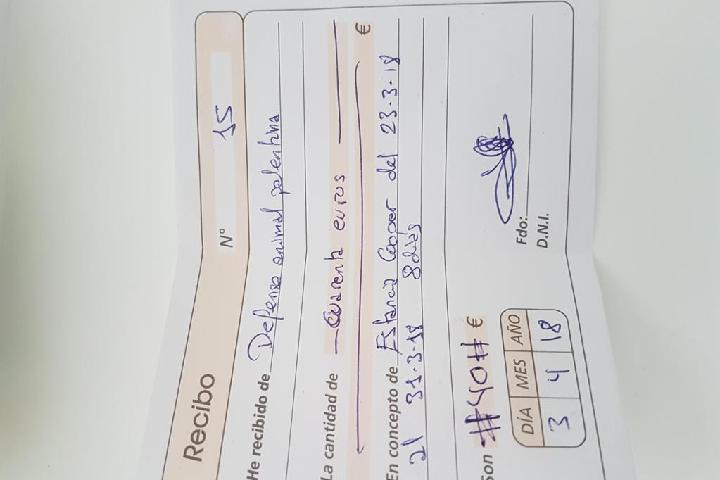 Recibo Nº 15
He recibido de Defensa animal palentina
La cantidad de — Cuarenta euros —
€
En concepto de Estancia Cooper del 23-3-18
al 31-3-18 8 días
Son #40# €
DÍA MES AÑO
3 4 18
Fdo:
D.N.I.